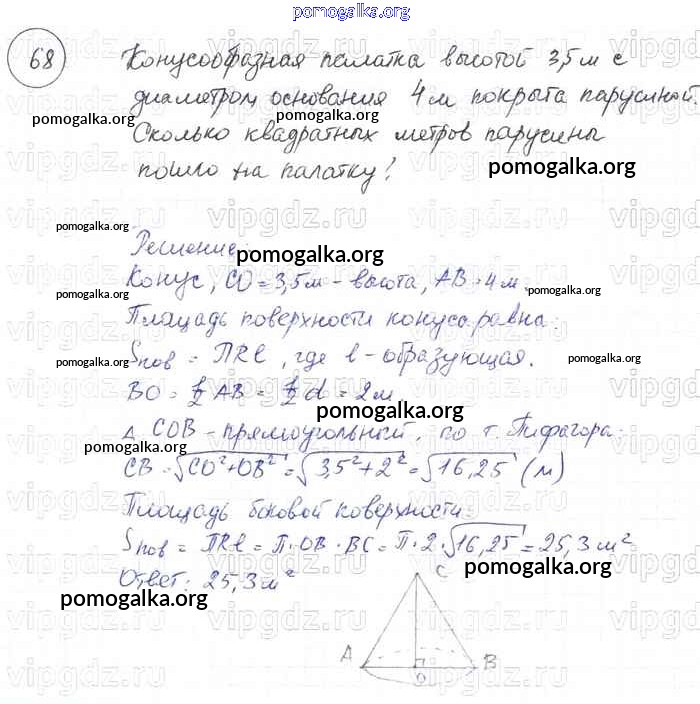 pomogalka.org
68
Конусообразная палатка высотой 3,5 м с
диаметром основания 4 м покрыта парусиной.
pomogalka.org
pomogalka.org
Сколько квадратных метров парусины
пошло на палатку?
pomogalka.org
pomogalka.org
Решение:
pomogalka.org
Конус, CO = 3,5 м - высота, AB = 4 м.
pomogalka.org
pomogalka.org
Площадь поверхности конуса равна:
Sпов = ПRl, где l - образующая.
pomogalka.org
BO = 1/2 AB = 1/2 d = 2 м
pomogalka.org
Δ COB - прямоугольный, по т. Пифагора:
pomogalka.org
CB = √CO²+OB² = √3,5²+2² = √16,25 (м)
Площадь боковой поверхности:
Sпов = ПRl = П·OB·BC = П·2·√16,25 = 25,3 м²
Ответ: 25,3 м²
pomogalka.org
pomogalka.org
C
A
B
O
vipgdz.ru